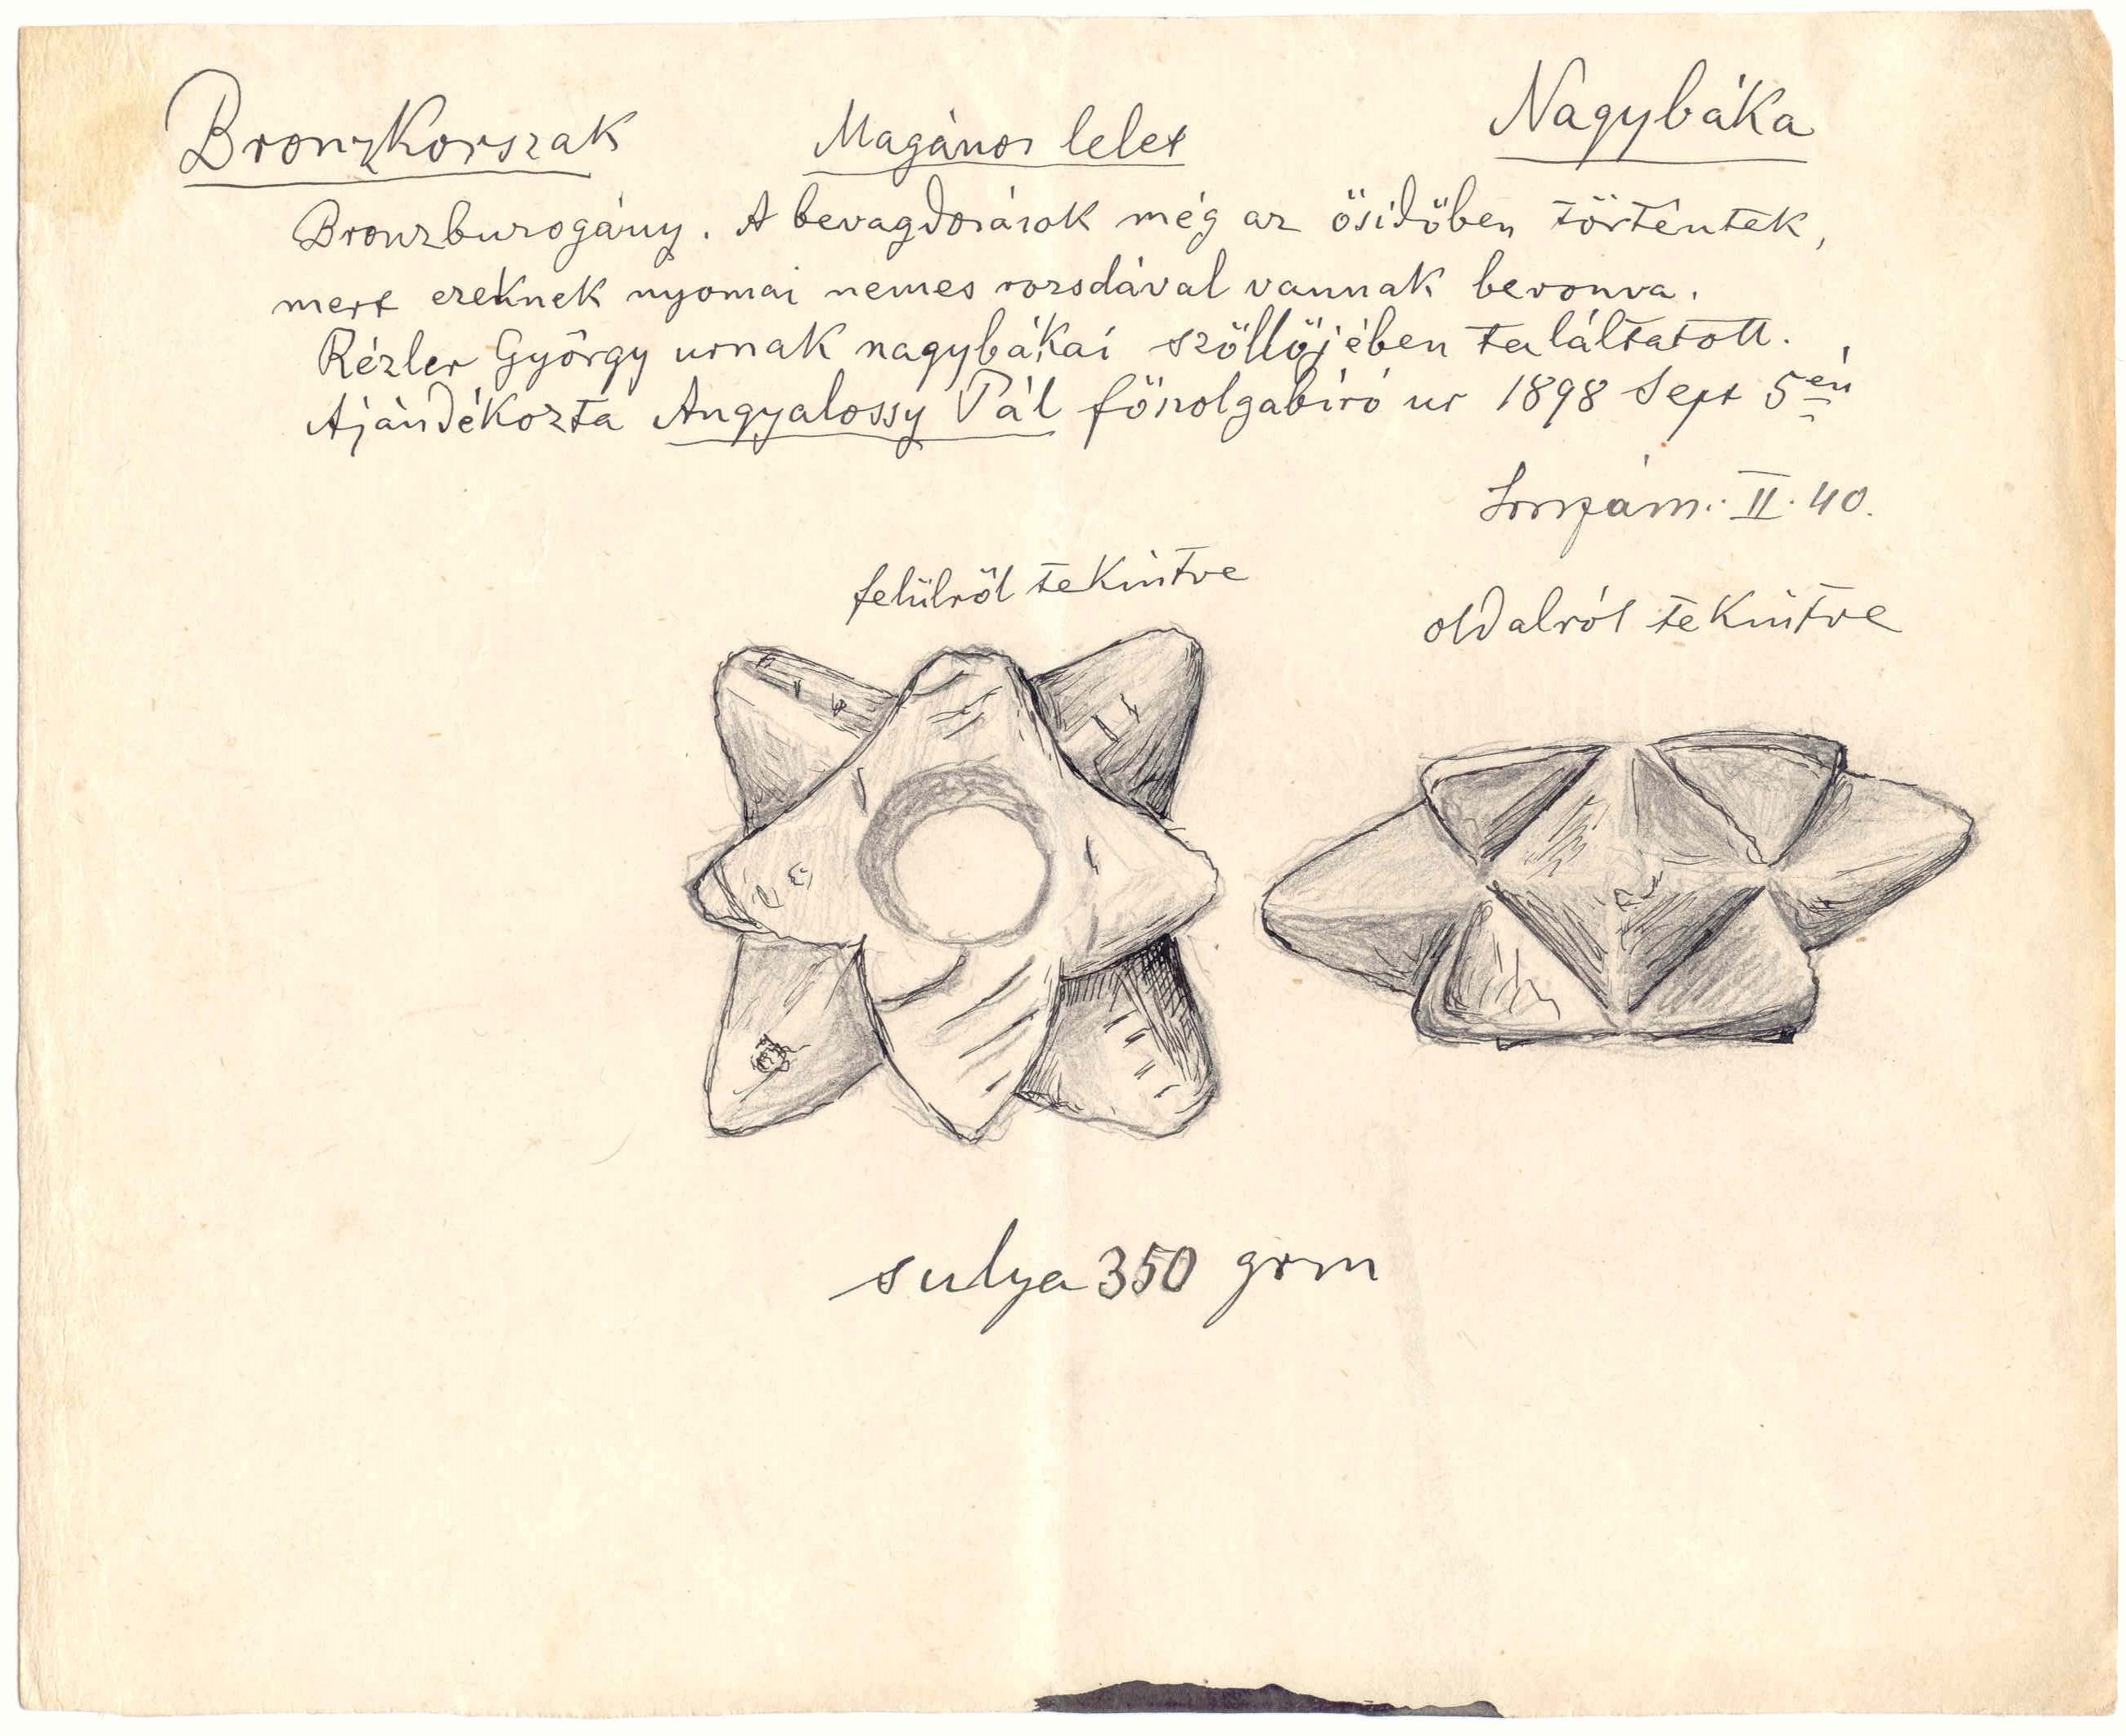 Bronzkorszak Magános lelet Nagybáka
Bronzbuzogány. A bevagdosások még az ősidőben történtek,
mert ezeknek nyomai nemes rozsdával vannak bevonva.
Rézler György urnak nagybákai szőllőjében találtatott.
Ajándékozta Angyalossy Pál főszolgabíró ur 1898 Sept 5én
Sorszám: II. 40.
felülről tekintve
oldalról tekintve
sulya 350 grm